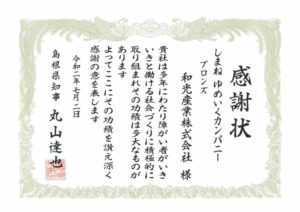 感謝状
しまねゆめいくカンパニー
ブロンズ
和光産業株式会社 様
貴社は多年にわたり障がい者がいき
いきと働ける社会づくりに積極的に
取り組まれその功績は多大なものが
あります
よってここにその功績を讃え深く
感謝の意を表します
令和二年七月二日
島根県知事 丸山達也